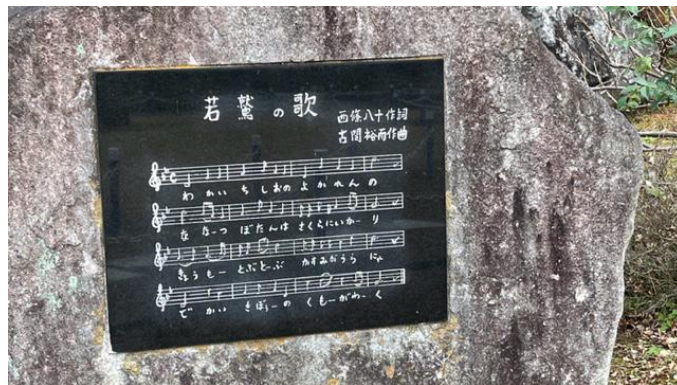 若鷲の歌
西條八十作詞
古関裕而作曲
わかい ちしおの よかれんの
ななーつ ぼたんは さくらにいかーり
きょうもー とぶとーぶ かすみがうら にゃ
でかい きぼーの くもーがわーく